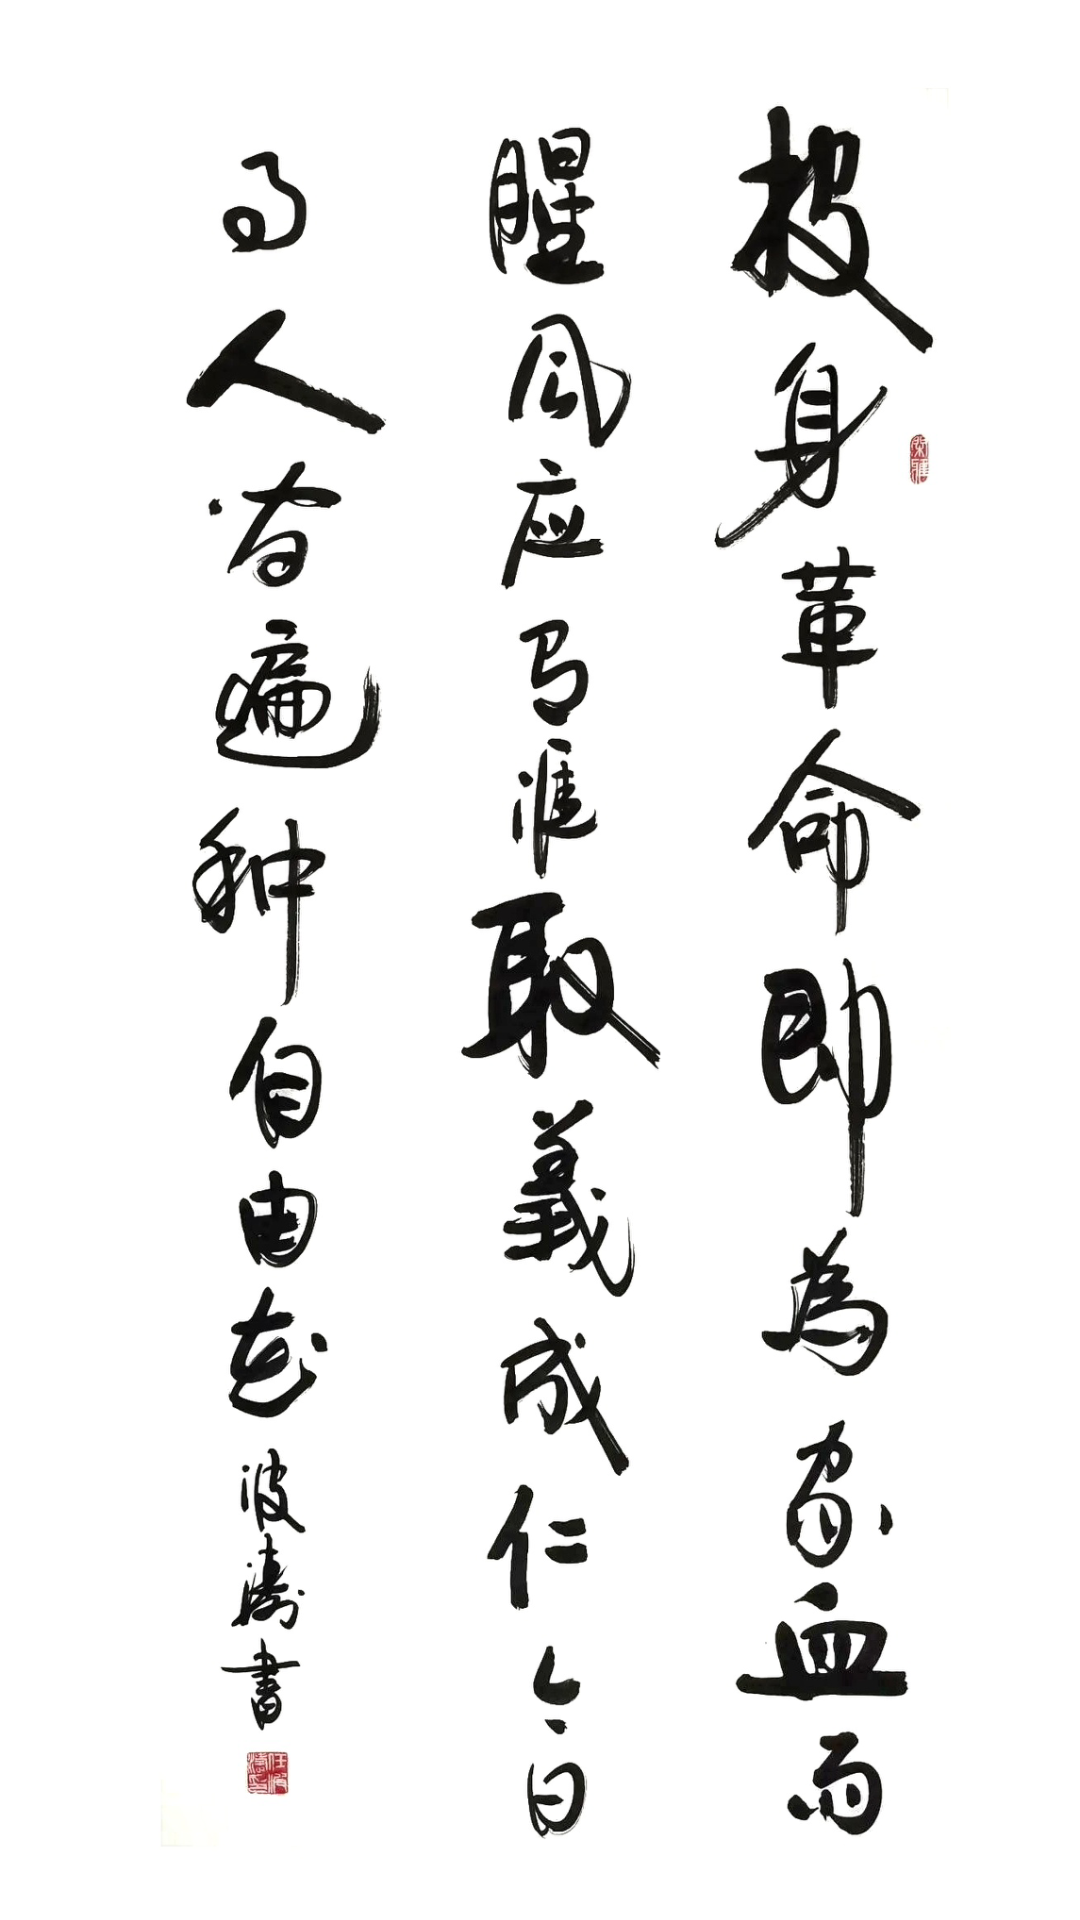 投身革命即為家血雨
腥风应有涯取義成仁今日
事人间遍种自由花
波涛書